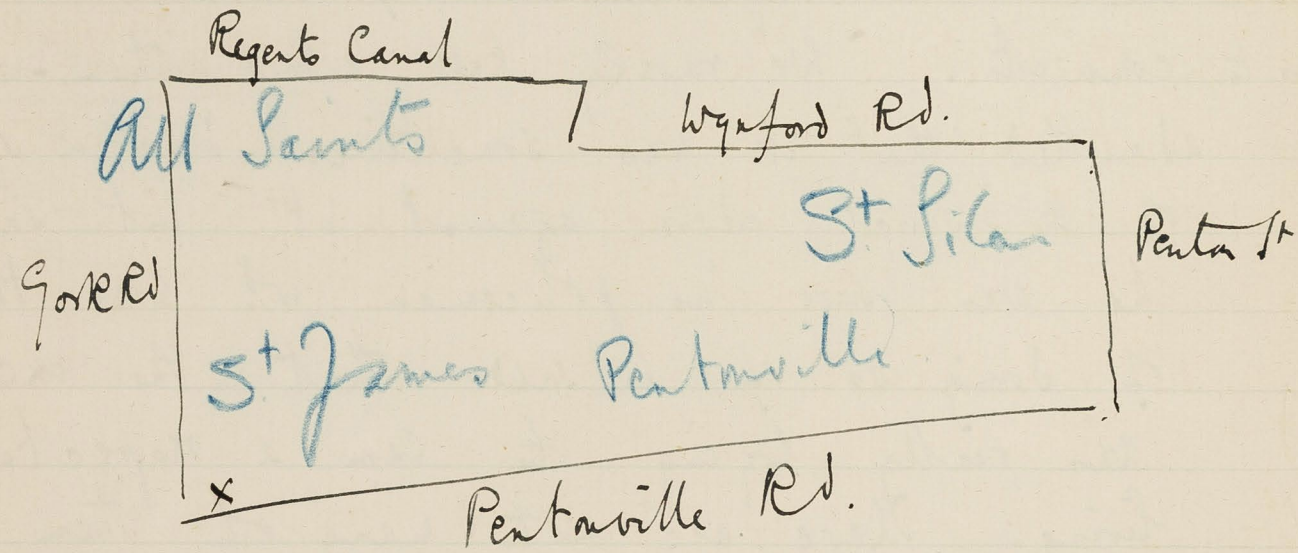 Regents Canal
All Saints
Wynford Rd.
St. Silas
Penton St
York Rd
St James Pentonville
x
Pentonville Rd.